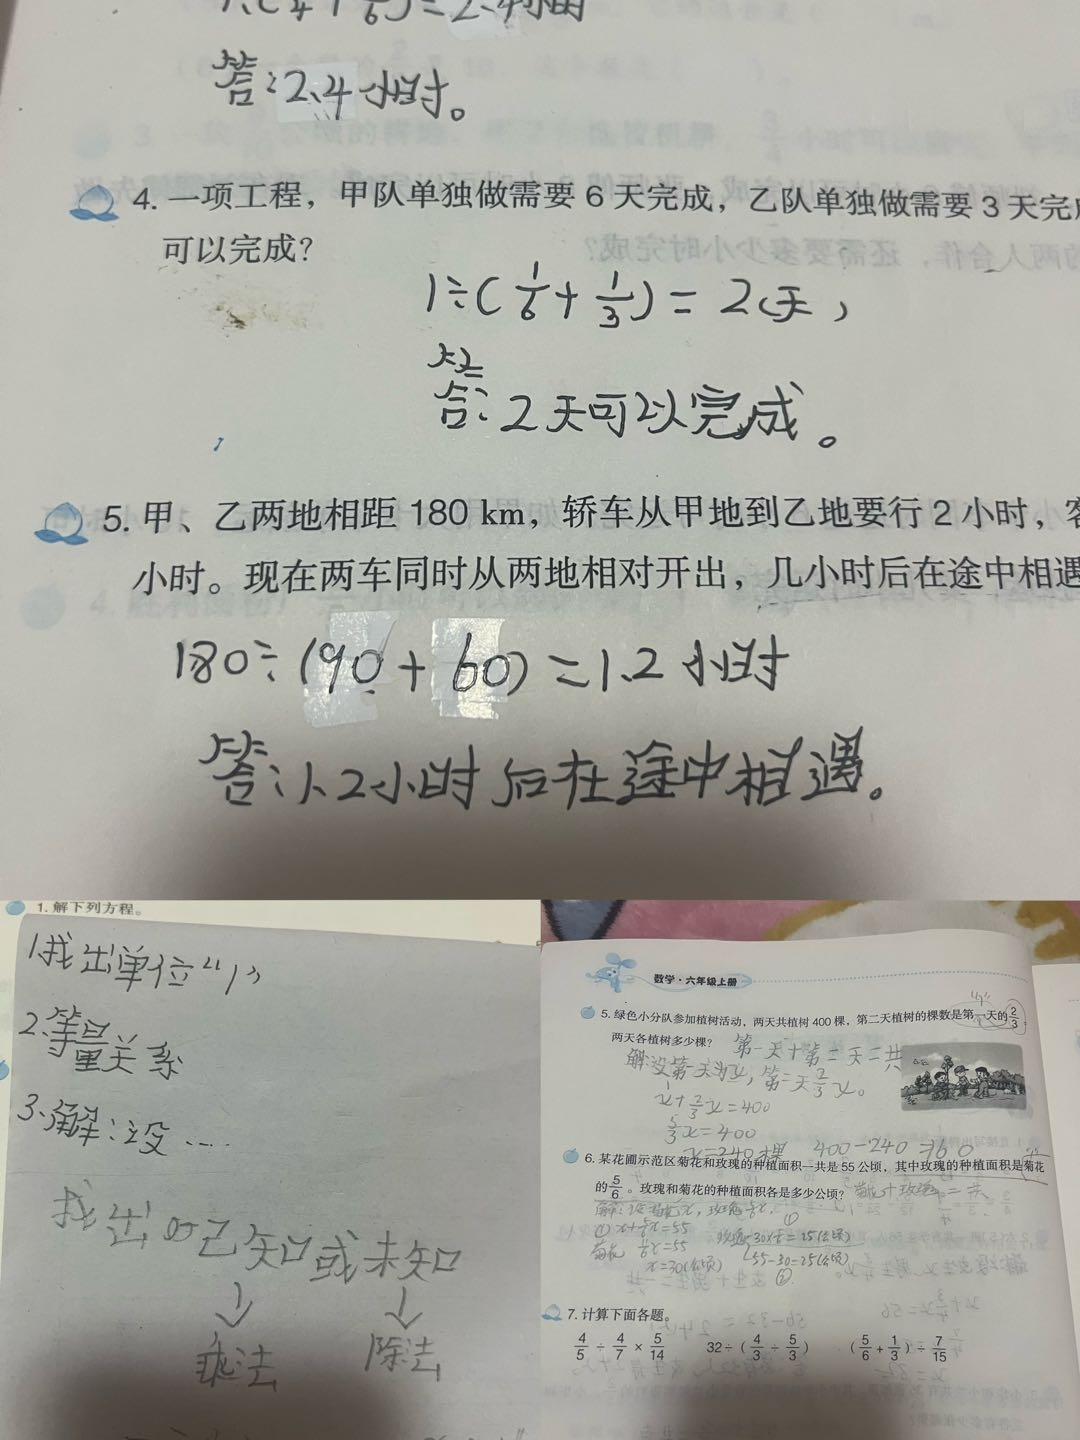 答:2.4小时。
4. 一项工程，甲队单独做需要 6 天完成，乙队单独做需要 3 天完成
可以完成？
1÷(1/6+1/3)=2(天)
答:2天可以完成。
5. 甲、乙两地相距 180 km，轿车从甲地到乙地要行 2 小时，客
小时。现在两车同时从两地相对开出，几小时后在途中相遇
180÷(90+60)=1.2小时
答:1.2小时后在途中相遇。
1. 解下列方程。
1.找出单位“1”
2.等量关系
3.解:设……
找出 已知或未知
↓ ↓
乘法 除法
数学·六年级上册
5. 绿色小分队参加植树活动，两天共植树 400 棵，第二天植树的棵数是第一天的 2/3，
“1”
两天各植树多少棵？ 第一天+第二天=共
解:设第一天为x，第二天2/3x。
x+2/3x=400
5/3x=400
x=240棵 400-240=160
6. 某花圃示范区菊花和玫瑰的种植面积一共是 55 公顷，其中玫瑰的种植面积是菊花
的 5/6。玫瑰和菊花的种植面积各是多少公顷？ 菊花+玫瑰=共
解:设菊花x，玫瑰5/6x。
①x+5/6x=55 玫瑰:30×5/6=25(公顷)
菊花 55-30=25(公顷)
x=30(公顷) ②
7. 计算下面各题。
4/5÷4/7×5/14 32÷(4/3÷5/3) (5/6+1/3)÷7/15